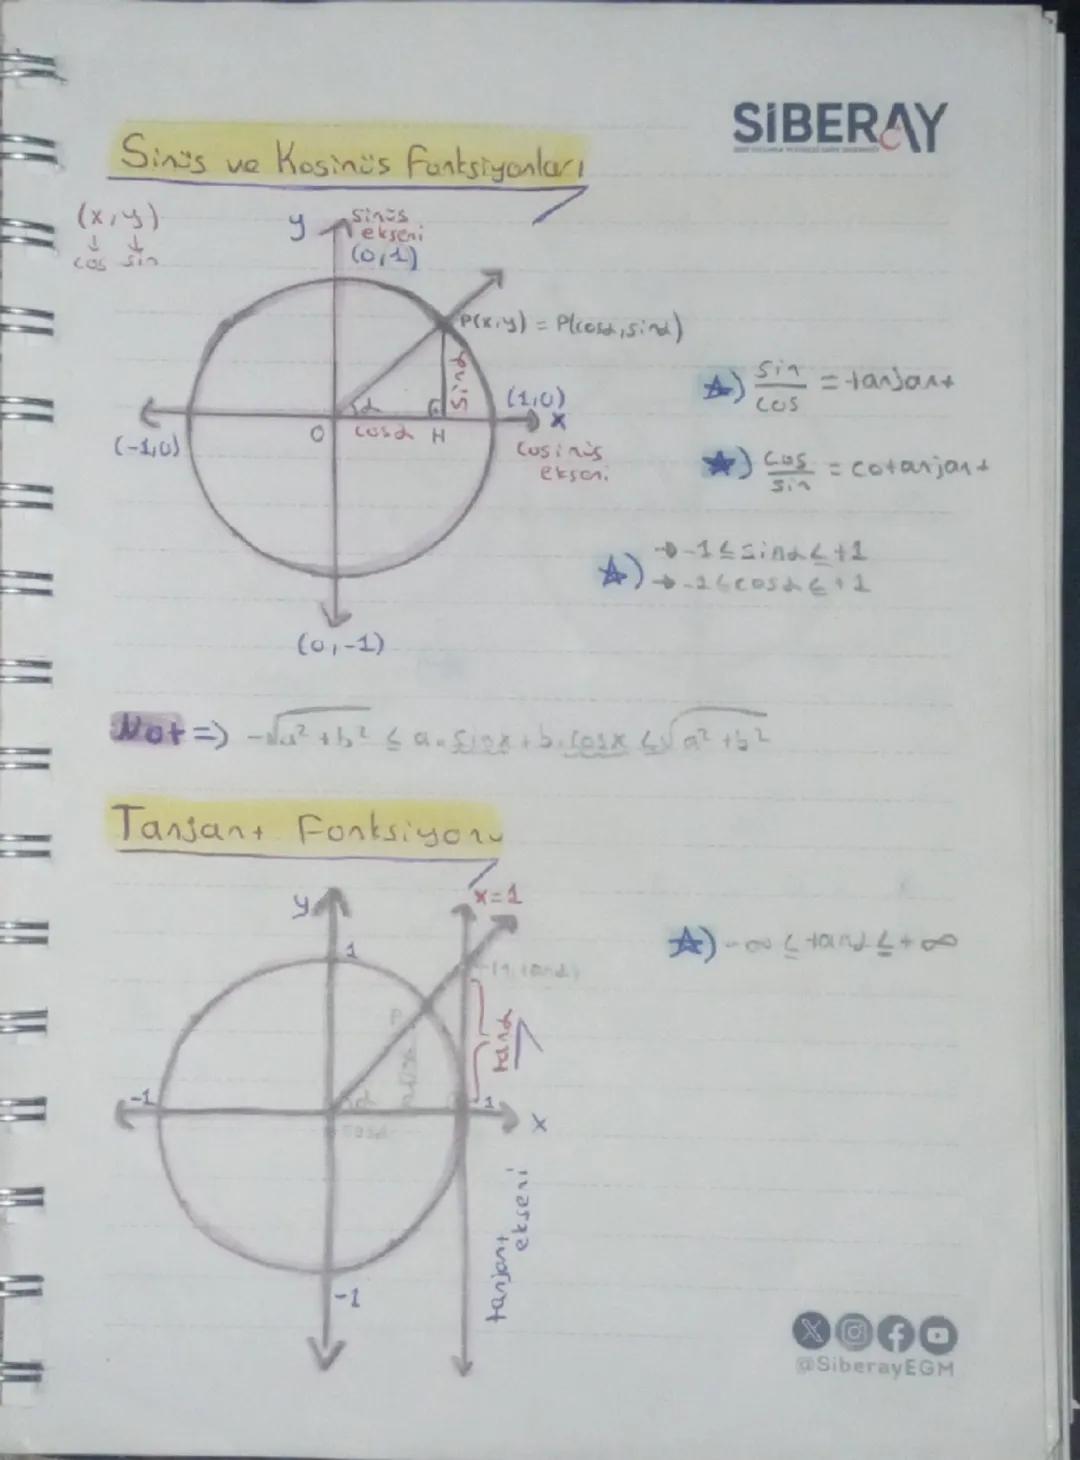 SİBERAY
Sinüs ve Kosinüs Fonksiyonları
(x,y)
↓ ↓
cos sin
y
sinüs
ekseni
(0,1)
P(x,y) = P(cosα,sinα)
sinα
(1,0)
x
(-1,0)
O
α
cosα
H
Cosinüs
ekseni
(0,-1)
☆) sin/cos = tanjant
★) cos/sin = cotanjant
☆) → -1 ≤ sinα ≤ +1
→ -1 ≤ cosα ≤ +1
Not => -√a² + b² ≤ a.sinx + b.cosx ≤ √a² + b²
Tanjant Fonksiyonu
y
x=1
1
(1,tanα)
P
tanα
sinα
α
-1
1
x
cosα
tanjant
ekseni
-1
☆) -∞ ≤ tanα ≤ +∞
@SiberayEGM